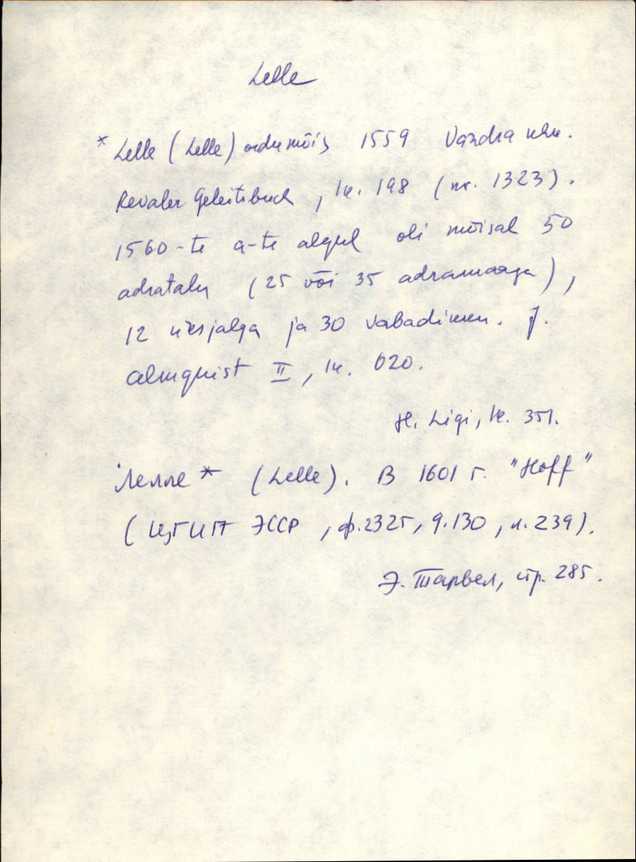 Lelle
* Lelle (Lelle) ordumõis 1559 Vändra khn.
Revaler Geleitsbuch, lk. 198 (nr. 1323).
1560-te a-te algul oli mõisal 50
adratalu (25 või 35 adramaaga),
12 üksjalga ja 30 vabadikku. J.
Almquist II, lk. 620.
H. Ligi, lk. 351.
Лелле* (Lelle). В 1601 г. "Hoff"
(ЦГИА ЭССР, ф.2325, д.130, л.239).
Э. Тарвел, стр. 285.